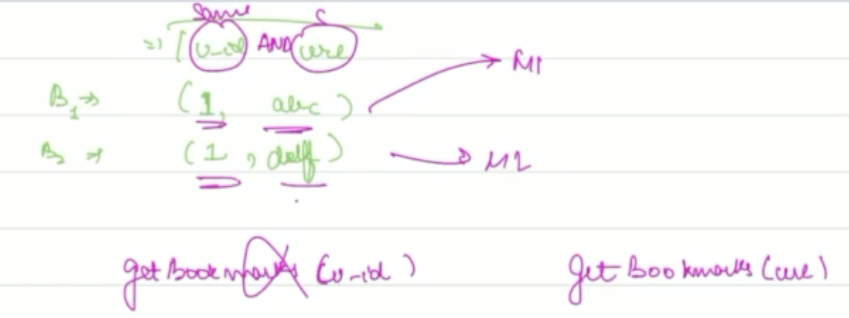 same
=> [u-id AND url]
B1 => (1, abc) → M1
B2 => (1, def) → M2
getBookmarks (u-id) getBookmarks (url)